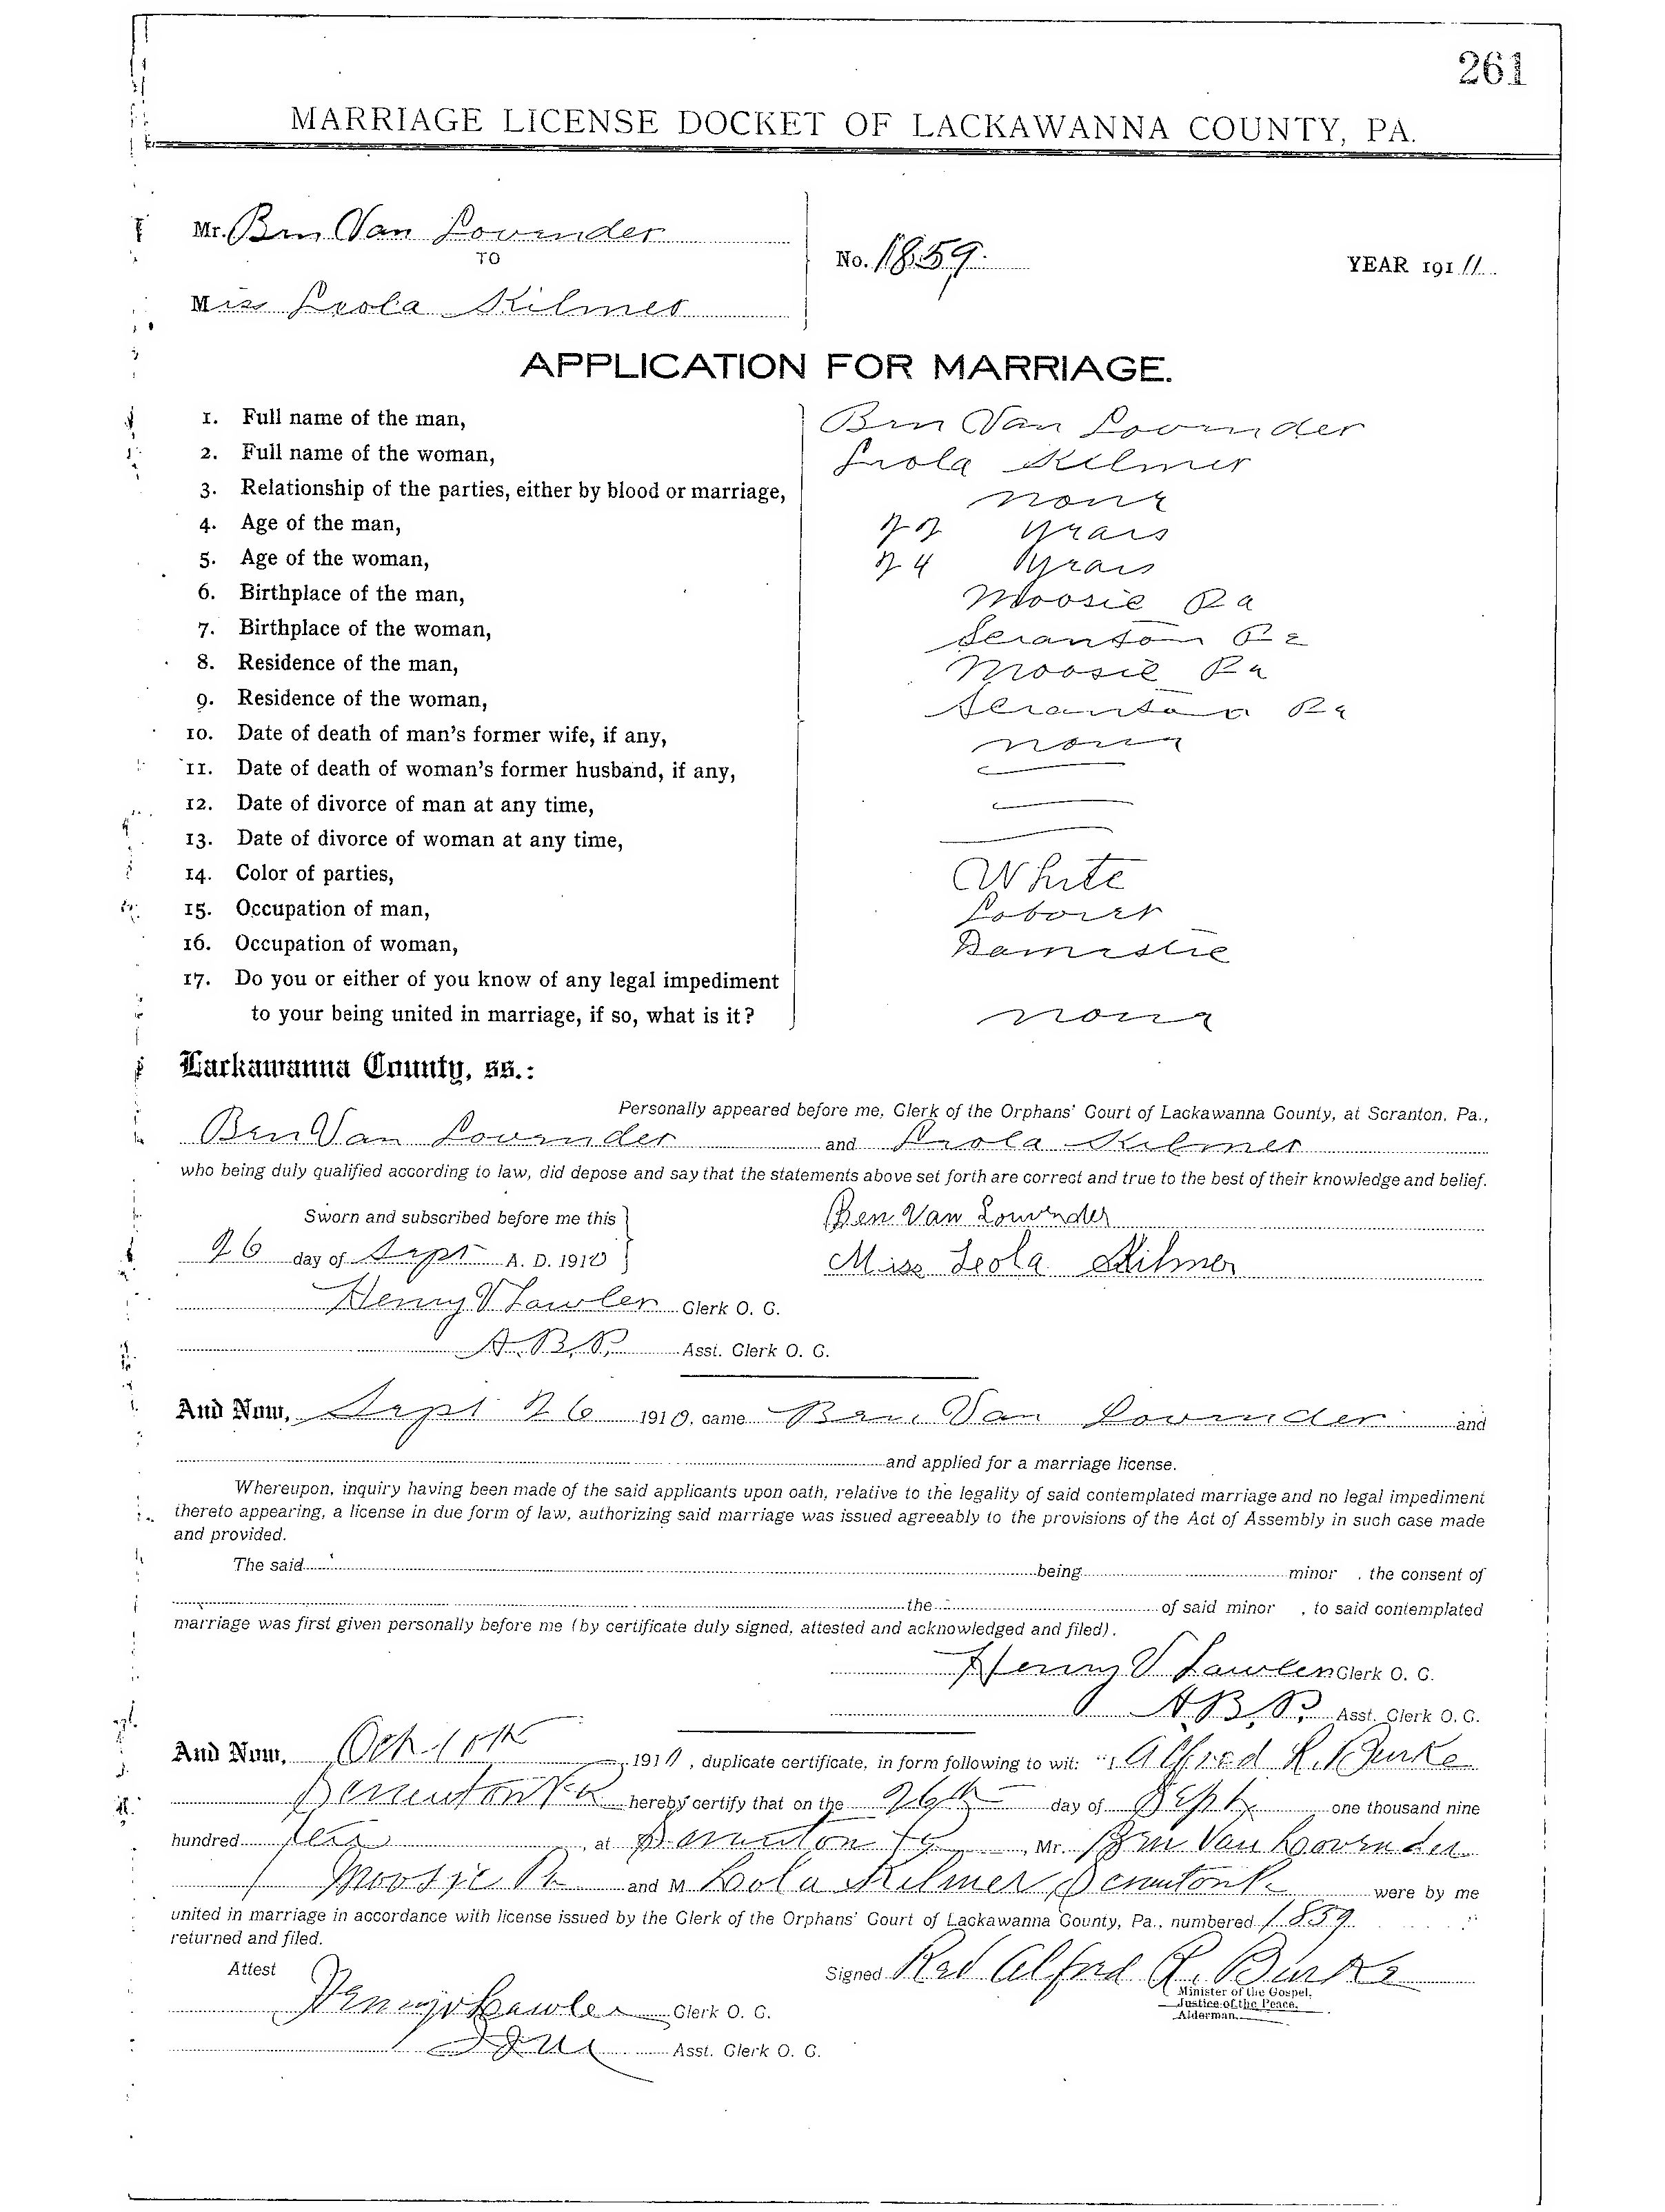 261
MARRIAGE LICENSE DOCKET OF LACKAWANNA COUNTY, PA.
Mr. Ben Van Lovender
TO
Miss Leola Kilmer
No. 1859.
YEAR 1911
APPLICATION FOR MARRIAGE.
1. Full name of the man, Ben Van Lovender
2. Full name of the woman, Leola Kilmer
3. Relationship of the parties, either by blood or marriage, none
4. Age of the man, 22 years
5. Age of the woman, 24 years
6. Birthplace of the man, Moosic Pa
7. Birthplace of the woman, Scranton Pa
8. Residence of the man, Moosic Pa
9. Residence of the woman, Scranton Pa
10. Date of death of man's former wife, if any, none
11. Date of death of woman's former husband, if any,
12. Date of divorce of man at any time,
13. Date of divorce of woman at any time,
14. Color of parties, White
15. Occupation of man, Laborer
16. Occupation of woman, Domestic
17. Do you or either of you know of any legal impediment
to your being united in marriage, if so, what is it? none
Lackawanna County, ss.:
Personally appeared before me, Clerk of the Orphans' Court of Lackawanna County, at Scranton, Pa.,
Ben Van Lovender and Leola Kilmer
who being duly qualified according to law, did depose and say that the statements above set forth are correct and true to the best of their knowledge and belief.
Sworn and subscribed before me this
26 day of Sept A. D. 1910
Ben Van Louvender
Miss Leola Kilmer
Henry V Lawler Clerk O. C.
A. B. P. Asst. Clerk O. C.
And Now, Sept 26 1910, came Ben Van Lovender and
and applied for a marriage license.
Whereupon, inquiry having been made of the said applicants upon oath, relative to the legality of said contemplated marriage and no legal impediment
thereto appearing, a license in due form of law, authorizing said marriage was issued agreeably to the provisions of the Act of Assembly in such case made
and provided.
The said being minor , the consent of
the of said minor , to said contemplated
marriage was first given personally before me (by certificate duly signed, attested and acknowledged and filed).
Henry V Lawler Clerk O. C.
A. B. P. Asst. Clerk O. C.
And Now, Oct. 10th 1910, duplicate certificate, in form following to wit: "I, Alfred R. Burke
Scranton Pa hereby certify that on the 26th day of Sept one thousand nine
hundred ten , at Scranton Pa , Mr. Ben Van Lovender
Moosic Pa and M Lola Kilmer, Scranton Pa were by me
united in marriage in accordance with license issued by the Clerk of the Orphans' Court of Lackawanna County, Pa., numbered 1859
returned and filed.
Attest
Signed Rev Alfred R. Burke
Minister of the Gospel.
Justice of the Peace.
Alderman.
Henry V Lawler Clerk O. C.
Asst. Clerk O. C.